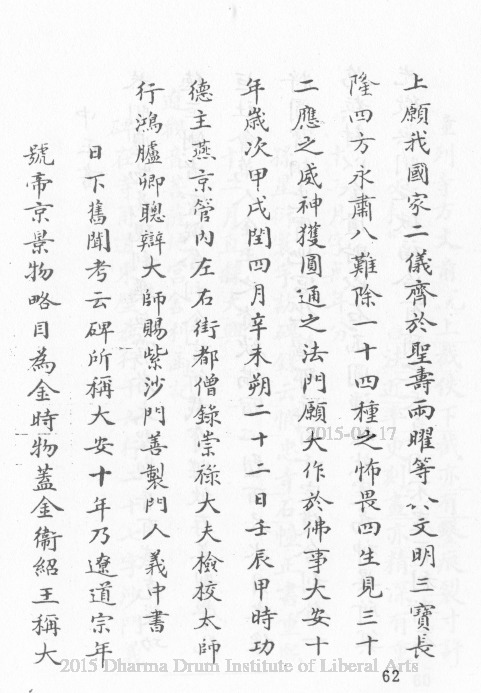 上願我國家二儀齊於聖壽兩曜等八文明三寶長
隆四方永肅八難除一十四種之怖畏四生見三十
二應之威神獲圓通之法門願大作於佛事大安十
年歲次甲戌閏四月辛未朔二十二日壬辰甲時功
德主燕京管內左右街都僧錄崇祿大夫檢校太師
行鴻臚卿聰辯大師賜紫沙門善製門人義中書
日下舊聞考云碑所稱大安十年乃遼道宗年
號帝京景物略目為金時物蓋金衛紹王稱大
2015-04-17
2015 Dharma Drum Institute of Liberal Arts
62